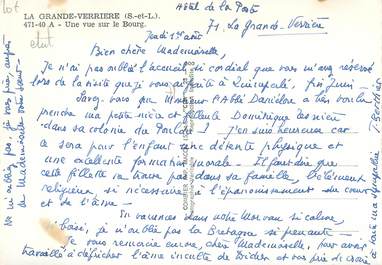 lot
Hôtel de la Poste
LA GRANDE-VERRIERE (S.-et-L.)
471-40 A - Une vue sur le Bourg.
71. La Grande-Verrière
Jeudi 1er août
Bien chère Mademoiselle,
Je n'ai pas oublié l'accueil si cordial que vous m'avez réservé
lors de la visite que je vous ai faite à Quimperlé, fin Juin.
Savez-vous que Monsieur l'Abbé Daniélou a bien voulu
prendre ma petite nièce et filleule Dominique
dans sa colonie du Pouldu ! J'en suis heureuse car
ce sera pour l'enfant une détente physique et
une excellente formation morale. Il faut dire que
cette fillette ne trouve pas dans sa famille, l'élément
religieux si nécessaire à l'épanouissement du cœur
et de l'âme.
En vacances dans notre Morvan si calme,
boisé, je n'oublie pas la Bretagne si prenante -
Je vous remercie encore, chère Mademoiselle, pour avoir
travaillé à défricher l'âme inculte de Didier et vous prie de croire
Ne m'oubliez pas, je vous prie, auprès
de Mademoiselle votre sœur -
à toute ma sympathie